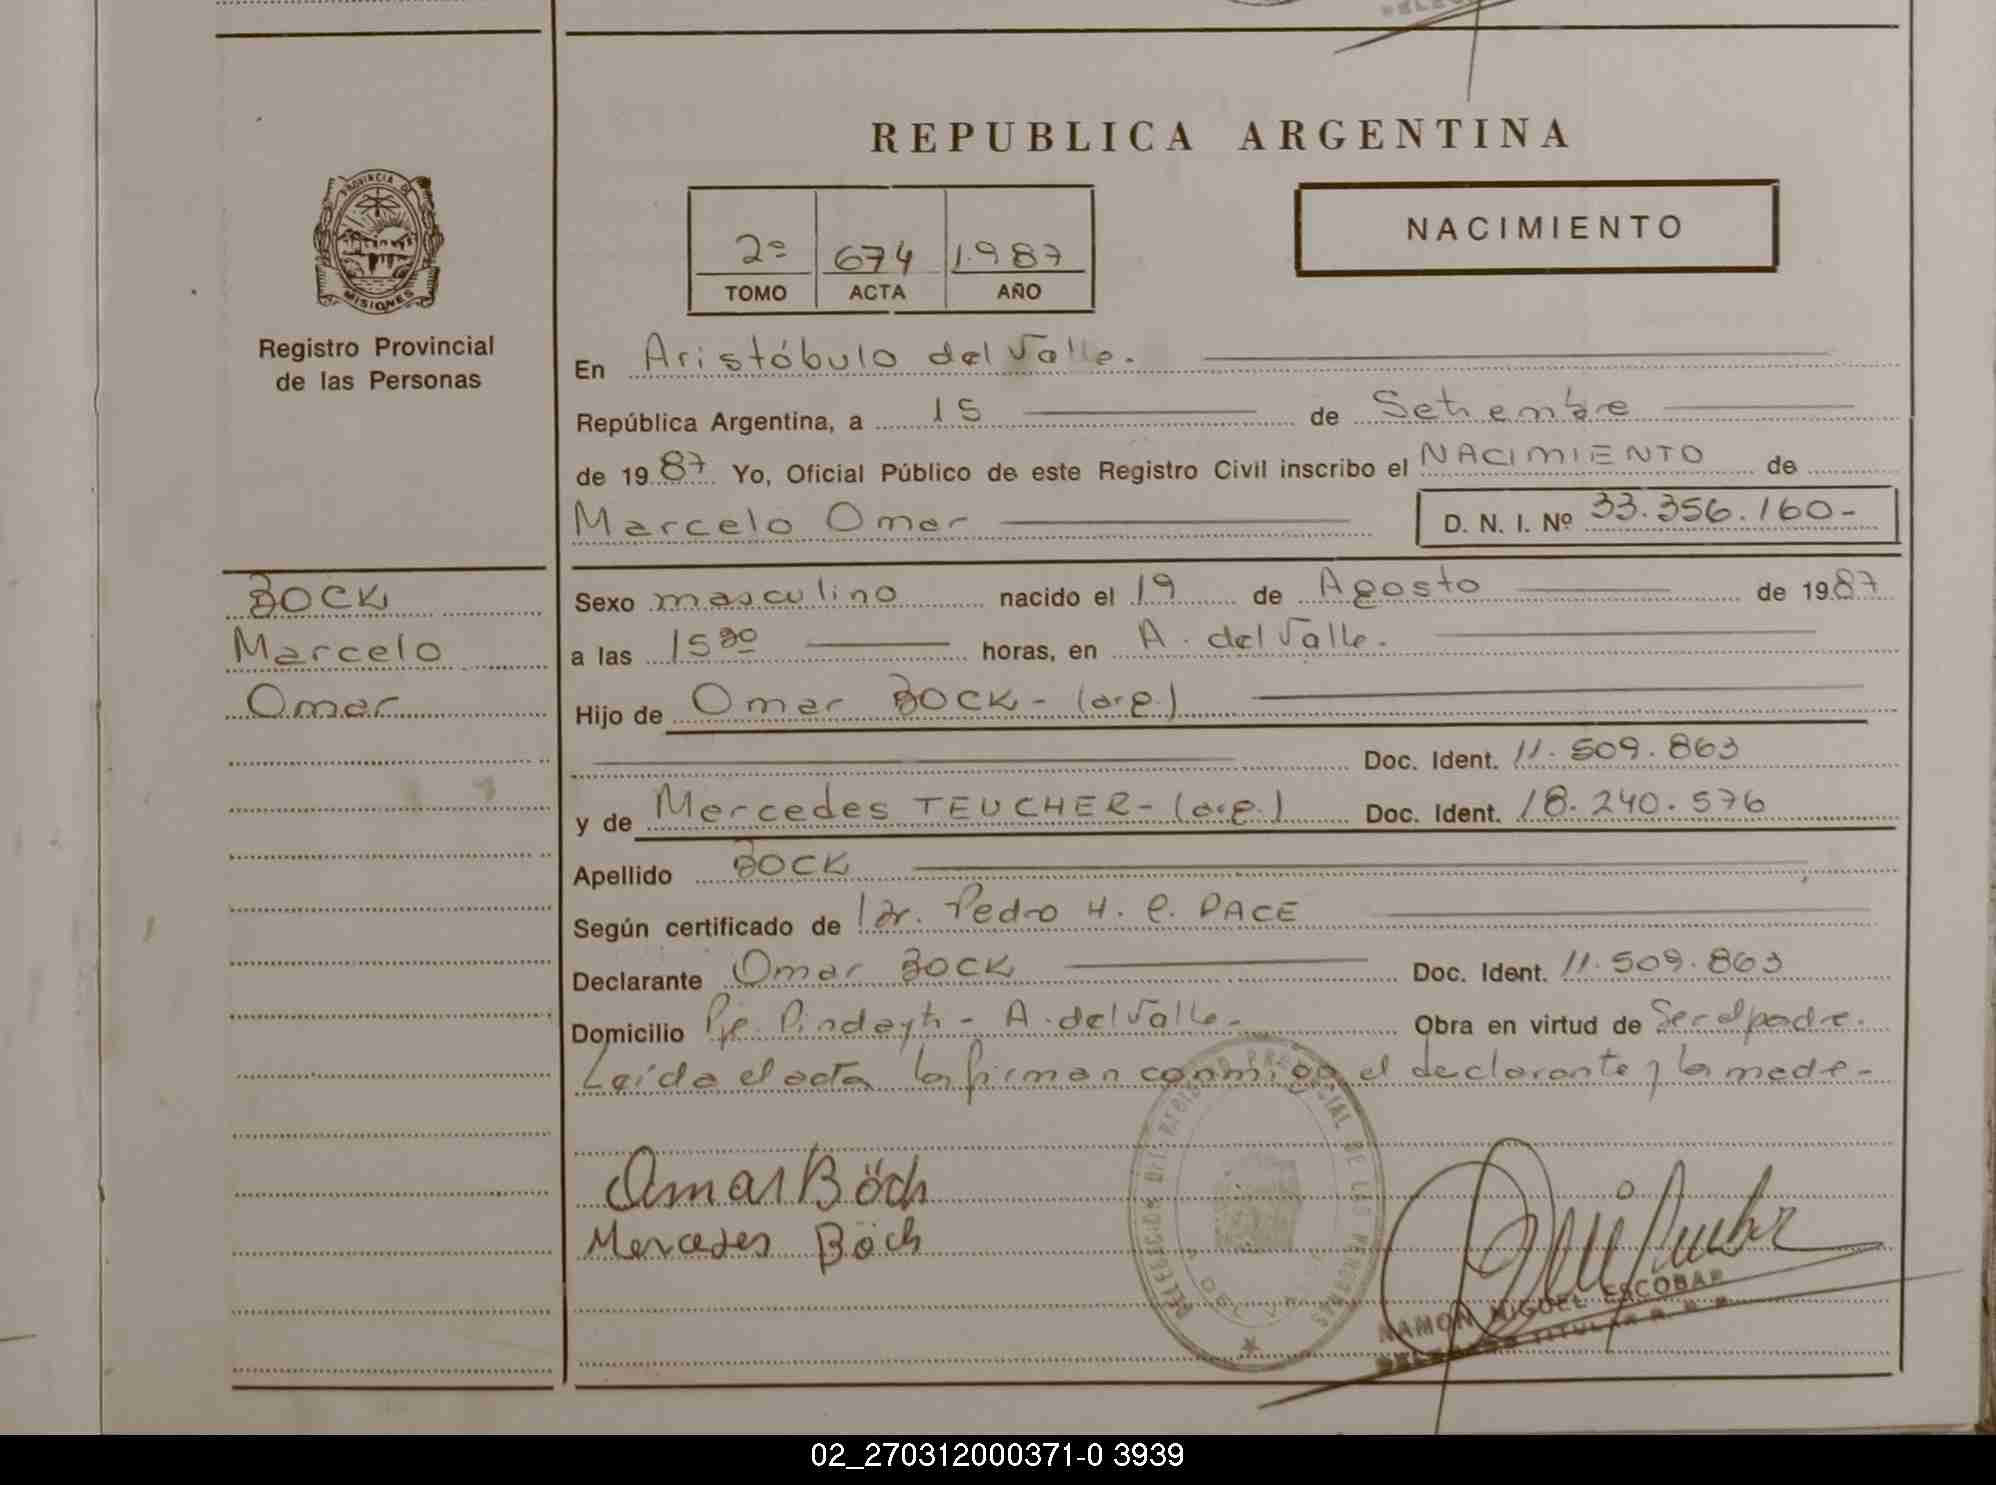 REPUBLICA ARGENTINA
PROVINCIA DE
MISIONES
Registro Provincial
de las Personas
2º 674 1.987
TOMO ACTA AÑO
NACIMIENTO
En Aristóbulo del Valle.
República Argentina, a 15 de Setiembre
de 1987 Yo, Oficial Público de este Registro Civil inscribo el NACIMIENTO de
Marcelo Omar D. N. I. Nº 33.356.160-
BOCK
Marcelo
Omar
Sexo masculino nacido el 19 de Agosto de 1987
a las 15 horas, en A. del Valle.
Hijo de Omar BOCK - (arg.)
Doc. Ident. 11.509.863
y de Mercedes TEUCHER - (arg.) Doc. Ident. 18.240.576
Apellido BOCK
Según certificado de Dr. Pedro H. C. PACE
Declarante Omar BOCK Doc. Ident. 11.509.863
Domicilio Pje. Pindayti - A. del Valle. Obra en virtud de Ser el padre.
Leída el acta la firman conmigo el declarante y la madre-
Omar Böch
Mercedes Böch
DELEGACION DEL REGISTRO PROVINCIAL DE LAS PERSONAS
A. DEL VALLE
RAMON MIGUEL ESCOBAR
DELEGADO TITULAR
02_270312000371-0 3939